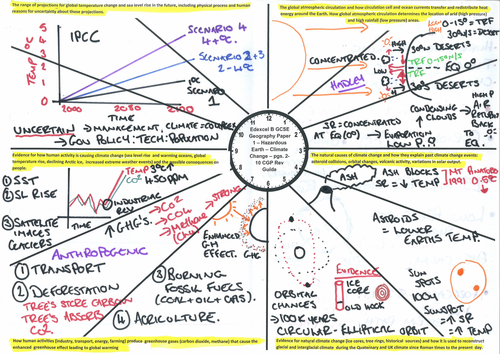 The range of projections for global temperature change and sea level rise in the future, including physical process and human
reasons for uncertainty about those projections.
IPCC
TEMP °C
5
4
3
2
1
0
2000
2050
2100
TIME
SCENARIO 4
4+°C.
SCENARIO 2+3
2-4°C
1°C
SCENARIO
1
UNCERTAIN → MANAGEMENT, CLIMATE = COMPLEX
→ GOV POLICY: TECH: POPULATION
The global atmospheric circulation and how circulation cell and ocean currents transfer and redistribute heat
energy around the Earth. How global atmospheric circulation determines the location of arid (high pressure)
and high rainfall (low pressure) areas.
CONCENTRATED.
HADLEY
HIGH
LOW
30°N DESERTS
EQ 0°
30°S DESERTS
SR = CONCENTRATED
AT EQ (0°) → EVAPORATION
LOW P.
CONDENSING
↑ CLOUDS
HIGH P
AIR
RETURNS
BACK
TO EQ
12
1
2
3
4
5
6
7
8
9
10
11
Edexcel B GCSE
Geography Paper
1 – Hazardous
Earth – Climate
Change – pgs. 2-
10 CGP Rev
Guide
Evidence for how human activity is causing climate change (sea level rise and warming oceans, global
temperature rise, declining Arctic ice, increased extreme weather events) and the possible consequences on
people.
① SST
② SL RISE
③ SATELLITE
IMAGES
GLACIERS
TEMP
CO2
450PPM
TIME
INDUSTRIAL
REV
↑ GHG's.
→ CO2
→ CH4
→ Methane
STRONG
ENHANCED
G.H
EFFECT.
GHG
ANTHROPOGENIC
① TRANSPORT
② DEFORESTATION
TREE'S STORE CARBON
TREE'S ABSORB
CO2
③ BURNING
FOSSIL FUELS
(COAL + OIL + GAS).
④ AGRICULTURE.
How human activities (industry, transport, energy, farming) produce greenhouse gases (carbon dioxide, methane) that cause the
enhanced greenhouse effect leading to global warming
The natural causes of climate change and how they explain past climate change events:
asteroid collisions, orbital changes, volcanic activity, variations in solar output.
ASH
ASH BLOCKS
SR = ↓ TEMP
MT PINATUBO
1991 0.5°C
ASTROIDS
= LOWER
EARTHS TEMP.
ORBITAL
CHANGES
→ 100K YEARS
CIRCULAR - ELLIPTICAL ORBIT
EVIDENCES
ICE
CORE
OLD
SUN
SPOTS
SUNSPOT
= ↑ SR
= ↑ TEMP
Evidence for natural climate change (ice cores, tree rings, historical sources) and how it is used to reconstruct
glacial and interglacial climate during the Quaternary and UK climate since Roman times to the present day.